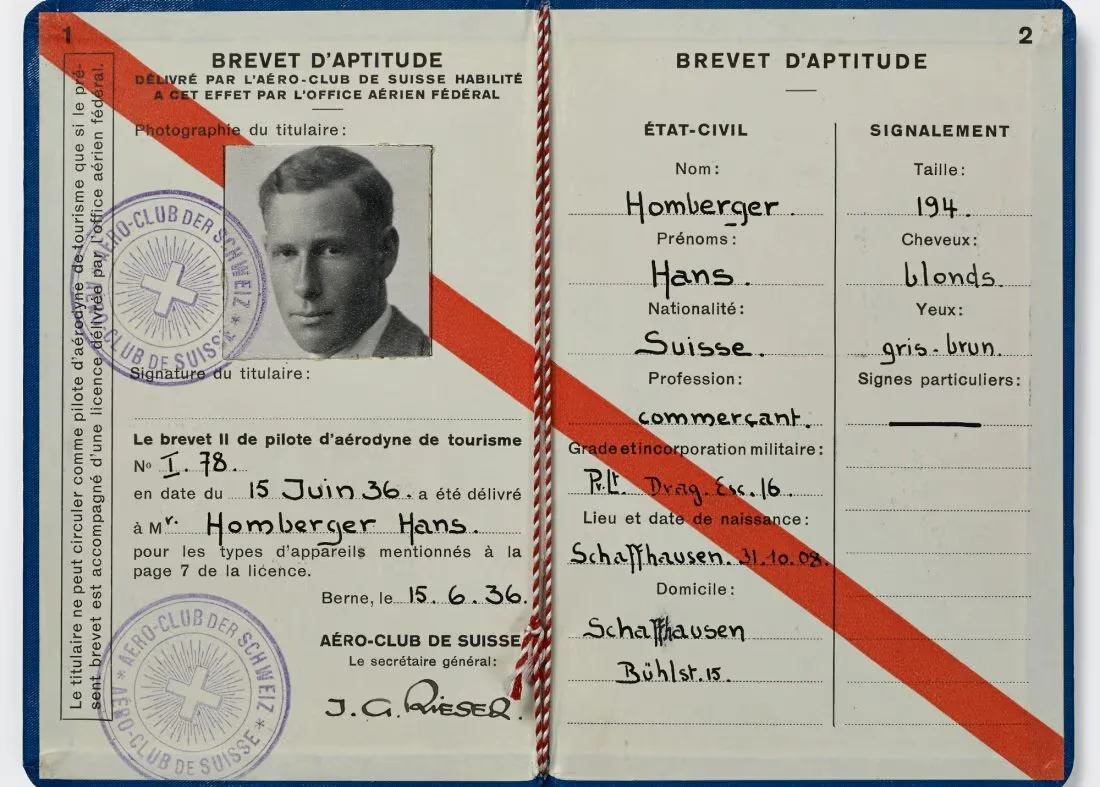 1
BREVET D'APTITUDE
DÉLIVRÉ PAR L'AÉRO-CLUB DE SUISSE HABILITÉ
A CET EFFET PAR L'OFFICE AÉRIEN FÉDÉRAL
Photographie du titulaire:
AÉRO-CLUB DER SCHWEIZ *
CLUB DE SUISSE *
Signature du titulaire:
Le brevet II de pilote d'aérodyne de tourisme
No I. 78.
en date du 15 Juin 36. a été délivré
à Mr. Homberger Hans.
pour les types d'appareils mentionnés à la
page 7 de la licence.
Berne, le 15. 6. 36.
AÉRO-CLUB DE SUISSE
Le secrétaire général:
J. G. RIESER.
* AÉRO-CLUB DER SCHWEIZ *
AÉRO-CLUB DE SUISSE
Le titulaire ne peut circuler comme pilote d'aérodyne de tourisme que si le pré-
sent brevet est accompagné d'une licence délivrée par l'office aérien fédéral.
2
BREVET D'APTITUDE
ÉTAT-CIVIL
Nom:
Homberger.
Prénoms:
Hans.
Nationalité:
Suisse.
Profession:
commerçant.
Grade et incorporation militaire:
Pr. Lt. Drag. Esc. 16.
Lieu et date de naissance:
Schaffhausen. 31. 10. 08.
Domicile:
Schaffhausen
Bühlst. 15.
SIGNALEMENT
Taille:
194.
Cheveux:
blonds.
Yeux:
gris-brun.
Signes particuliers: